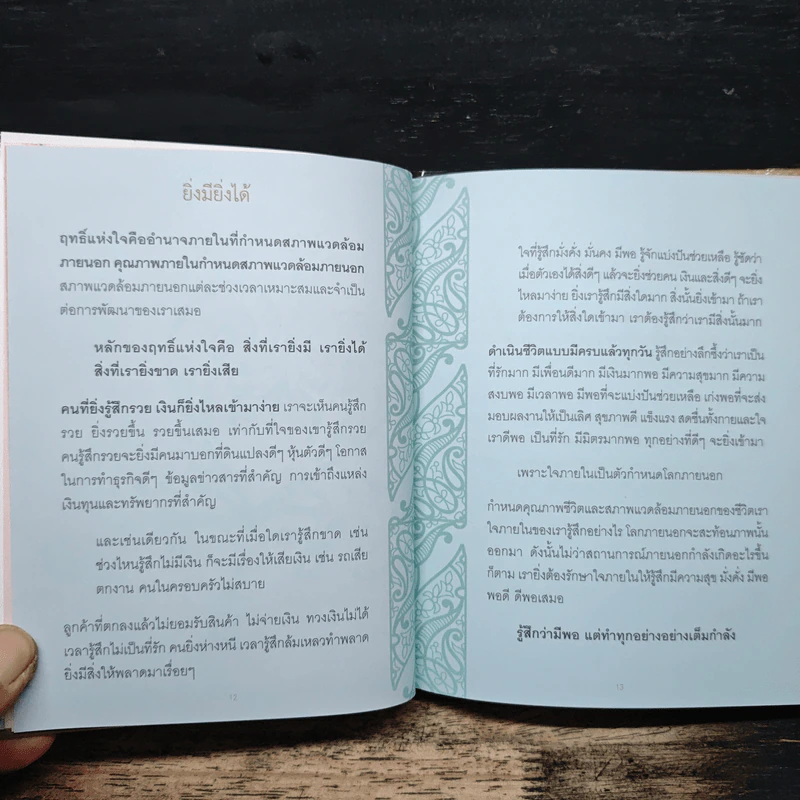 ยิ่งมียิ่งได้
ฤทธิ์แห่งใจคืออำนาจภายในที่กำหนดสภาพแวดล้อม
ภายนอก คุณภาพภายในกำหนดสภาพแวดล้อมภายนอก
สภาพแวดล้อมภายนอกแต่ละช่วงเวลาเหมาะสมและจำเป็น
ต่อการพัฒนาของเราเสมอ
หลักของฤทธิ์แห่งใจคือ สิ่งที่เรายิ่งมี เรายิ่งได้
สิ่งที่เรายิ่งขาด เรายิ่งเสีย
คนที่ยิ่งรู้สึกรวย เงินก็ยิ่งไหลเข้ามาง่าย เราจะเห็นคนรู้สึก
รวย ยิ่งรวยขึ้น รวยขึ้นเสมอ เท่ากับที่ใจของเขารู้สึกรวย
คนรู้สึกรวยจะยิ่งมีคนมาบอกที่ดินแปลงดีๆ หุ้นตัวดีๆ โอกาส
ในการทำธุรกิจดีๆ ข้อมูลข่าวสารที่สำคัญ การเข้าถึงแหล่ง
เงินทุนและทรัพยากรที่สำคัญ
และเช่นเดียวกัน ในขณะที่เมื่อใดเรารู้สึกขาด เช่น
ช่วงไหนรู้สึกไม่มีเงิน ก็จะมีเรื่องให้เสียเงิน เช่น รถเสีย
ตกงาน คนในครอบครัวไม่สบาย
ลูกค้าที่ตกลงแล้วไม่ยอมรับสินค้า ไม่จ่ายเงิน ทวงเงินไม่ได้
เวลารู้สึกไม่เป็นที่รัก คนยิ่งห่างหนี เวลารู้สึกล้มเหลวทำพลาด
ยิ่งมีสิ่งให้พลาดมาเรื่อยๆ
12
ใจที่รู้สึกมั่งคั่ง มั่นคง มีพอ รู้จักแบ่งปันช่วยเหลือ รู้ชัดว่า
เมื่อตัวเองได้สิ่งดีๆ แล้วจะยิ่งช่วยคน เงินและสิ่งดีๆ จะยิ่ง
ไหลมาง่าย ยิ่งเรารู้สึกมีสิ่งใดมาก สิ่งนั้นยิ่งเข้ามา ถ้าเรา
ต้องการให้สิ่งใดเข้ามา เราต้องรู้สึกว่าเรามีสิ่งนั้นมาก
ดำเนินชีวิตแบบมีครบแล้วทุกวัน รู้สึกอย่างลึกซึ้งว่าเราเป็น
ที่รักมาก มีเพื่อนดีมาก มีเงินมากพอ มีความสุขมาก มีความ
สงบพอ มีเวลาพอ มีพอที่จะแบ่งปันช่วยเหลือ เก่งพอที่จะส่ง
มอบผลงานให้เป็นเลิศ สุขภาพดี แข็งแรง สดชื่นทั้งกายและใจ
เราดีพอ เป็นที่รัก มีมิตรมากพอ ทุกอย่างที่ดีๆ จะยิ่งเข้ามา
เพราะใจภายในเป็นตัวกำหนดโลกภายนอก
กำหนดคุณภาพชีวิตและสภาพแวดล้อมภายนอกของชีวิตเรา
ใจภายในของเรารู้สึกอย่างไร โลกภายนอกจะสะท้อนภาพนั้น
ออกมา ดังนั้นไม่ว่าสถานการณ์ภายนอกกำลังเกิดอะไรขึ้น
ก็ตาม เรายิ่งต้องรักษาใจภายในให้รู้สึกมีความสุข มั่งคั่ง มีพอ
พอดี ดีพอเสมอ
รู้สึกว่ามีพอ แต่ทำทุกอย่างอย่างเต็มกำลัง
13